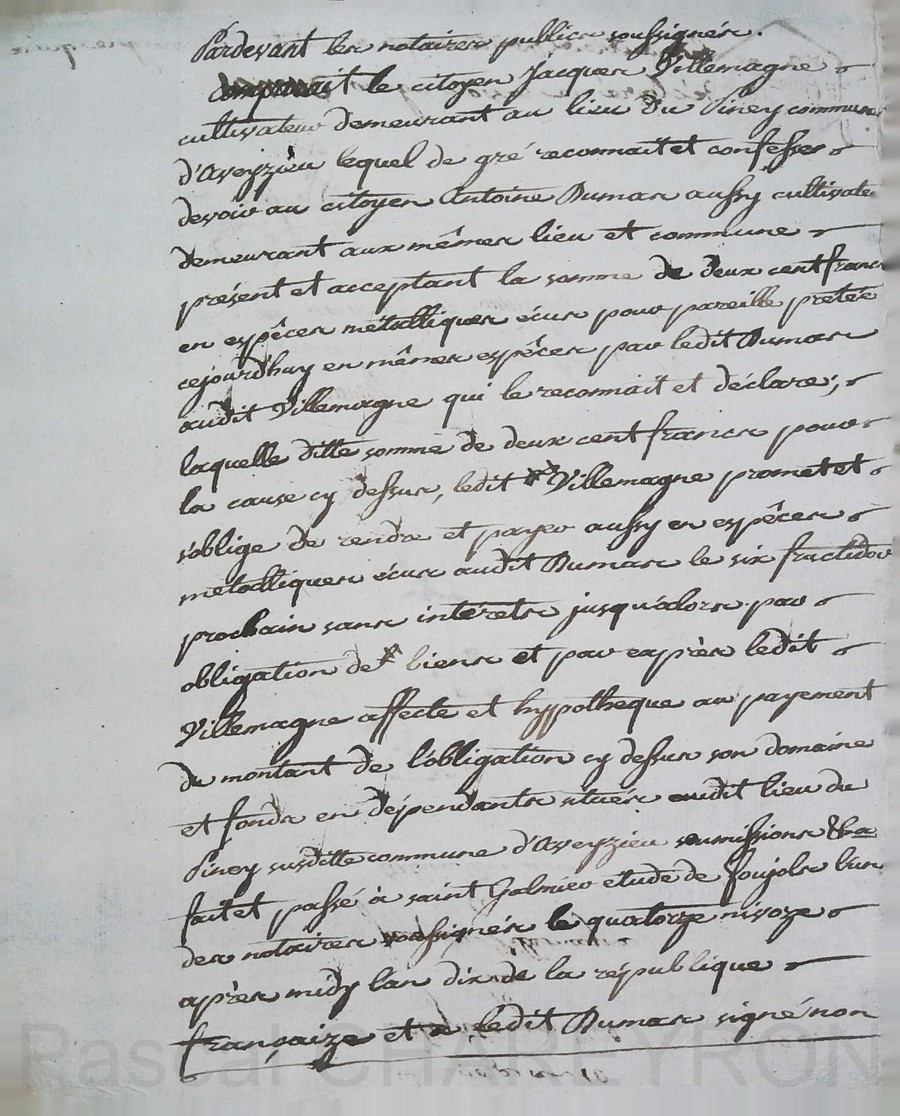 Pardevant les notaires publics soussignés.
comparait le citoyen Jacques Villemagne
cultivateur demeurant au lieu du Piney commune
d'Aveyzieu lequel de gré reconnait et confesse
devoir au citoyen Antoine Dumas aussy cultivate
demeurant aux mêmes lieu et commune
présent et acceptant la somme de deux cent francs
en espêces métalliques écus pour pareille pretée
cejourd'huy en mêmes espêces par ledit Dumas
audit Villemagne qui le reconnait et déclare;
laquelle ditte somme de deux cent francs pour
la cause cy dessus, ledit Villemagne promet et
s'oblige de rendre et payer aussy en espêces
métalliques écus audit Dumas le six fructidor
prochain sans intérets jusqu'alors par
obligation de biens et par exprès ledit
Villemagne affecte et hypotheque au payement
du montant de l'obligation cy dessus son domaine
et fonds en dépendants situés audit lieu du
Piney susditte commune d'Aveyzieu soumissions &ca
fait et passé à saint Galmier etude de Foujols l'un
des notaires soussignés le quatorze nivoze
après midy l'an dix de la république
françaize et ledit Dumas signé non
Pascal CHAREYRON